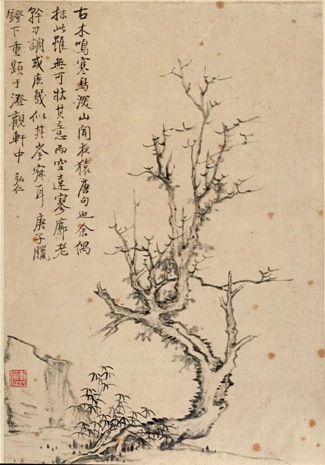 古木鳴寒鳥深山聞夜猿唐句也余偶
抹此雖無可狀其意而空遠寥廓老
幹刁調或庶幾似其岑寂耳庚子臘
鐙下重題于澄觀軒中弘仁